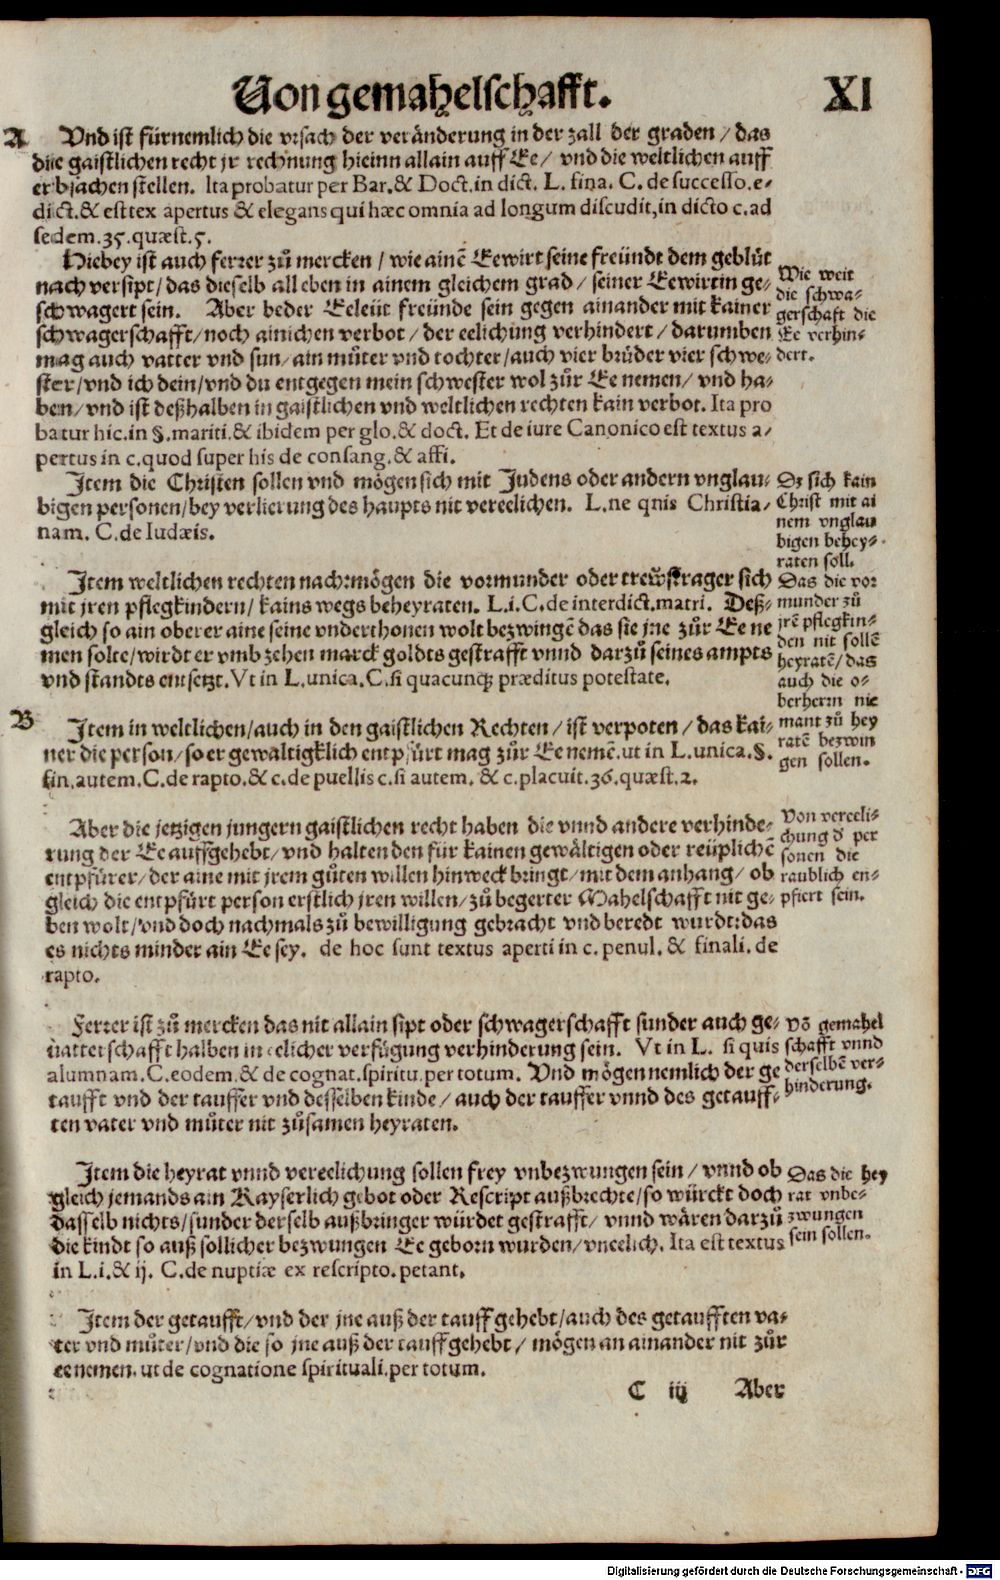 Von gemahelschafft. XI
A Vnd ist fürnemlich die vrsach der veränderung in der zall der graden / das
die gaistlichen recht jr rechnung hieinn allain auff Ee / vnd die weltlichen auff
erbsachen stellen. Ita probatur per Bar. & Doct. in dict. L. fina. C. de successo. e-
dict. & est tex apertus & elegans qui hæc omnia ad longum discudit, in dicto c. ad
sedem. 35. quæst. 5.
Hiebey ist auch ferrer zů mercken / wie ainē Eewirt seine freündt dem geblüt
nach versipt / das dieselb all eben in ainem gleichem grad / seiner Eewirtin ge-
schwagert sein. Aber beder Eeleüt freünde sein gegen ainander mit kainer
schwagerschafft / noch ainichen verbot / der eelichung verhindert / darumben
mag auch vatter vnd sun / ain můter vnd tochter / auch vier brüder vier schwe-
ster / vnd ich dein / vnd du entgegen mein schwester wol zůr Ee nemen / vnd ha-
ben / vnd ist deßhalben in gaistlichen vnd weltlichen rechten kain verbot. Ita pro
batur hic. in §. mariti. & ibidem per glo. & doct. Et de iure Canonico est textus a-
pertus in c. quod super his de consang. & affi.
Wie weit
die schwa-
gerschaft die
Ee verhin-
dert.
Item die Christen sollen vnd mögen sich mit Judens oder andern vnglau-
bigen personen / bey verlierung des haupts nit vereelichen. L. ne qnis Christia-
nam. C. de Iudæis.
Dz sich kain
Christ mit ai
nem vnglau
bigen behey-
raten soll.
Item weltlichen rechten nach: mögen die vormunder oder trewstrager sich
mit jren pflegkindern / kains wegs beheyraten. L. i. C. de interdict. matri. Deß-
gleich so ain oberer aine seine vnderthonen wolt bezwingē das sie jne zůr Ee ne
men solte / wirdt er vmb zehen marck goldts gestrafft vnnd darzů seines ampts
vnd standts entsetzt. Vt in L. unica. C. si quacunqʒ præditus potestate.
Das die vor
munder zů
jrē pflegkin-
den nit sollē
heyratē / das
auch die o-
berherrn nie
mant zů hey
ratē bezwin
gen sollen.
B Item in weltlichen / auch in den gaistlichen Rechten / ist verpoten / das kai-
ner die person / so er gewaltigklich entpfürt mag zůr Ee nemē. ut in L. unica. §.
fin. autem. C. de rapto. & c. de puellis c. si autem. & c. placuit. 36. quæst. 2.
Aber die jetzigen jungern gaistlichen recht haben die vnnd andere verhinde-
rung der Ee auffgehebt / vnd halten den für kainen gewältigen oder reüplichē
entpfürer / der aine mit jrem gůten willen hinweck bringt / mit dem anhang / ob
gleich die entpfürt person erstlich jren willen / zů begerter Mahelschafft nit ge-
ben wolt / vnd doch nachmals zů bewilligung gebracht vnd beredt wurdt: das
es nichts minder ain Ee sey. de hoc sunt textus aperti in c. penul. & finali. de
rapto.
Von vereeli-
chung d' per
sonen die
raublich en-
pfiert sein.
Ferrer ist zů mercken das nit allain sipt oder schwagerschafft sunder auch ge-
uatterschafft halben in eelicher verfügung verhinderung sein. Vt in L. si quis
alumnam. C. eodem. & de cognat. spiritu. per totum. Vnd mögen nemlich der ge
taufft vnd der tauffer vnd desselben kinde / auch der tauffer vnnd des getauff-
ten vater vnd můter nit zůsamen heyraten.
Vō gemahel
schafft vnnd
derselbē ver-
hinderung.
Item die heyrat vnnd vereelichung sollen frey vnbezwungen sein / vnnd ob
gleich jemands ain Kayserlich gebot oder Rescript außbrechte / so würckt doch
dasselb nichts / sunder derselb außbringer würdet gestrafft / vnnd wären darzů
die kindt so auß sollicher bezwungen Ee geborn wurden / vneelich. Ita est textus
in L. i. & ij. C. de nuptiæ ex rescripto. petant.
Das die hey
rat vnbe-
zwungen
sein sollen.
Item der getaufft / vnd der jne auß der tauff gehebt / auch des getaufften va-
ter vnd můter / vnd die so jne auß der tauff gehebt / mögen an ainander nit zůr
ee nemen. ut de cognatione spirituali. per totum.
C iij Aber
Digitalisierung gefördert durch die Deutsche Forschungsgemeinschaft - DFG